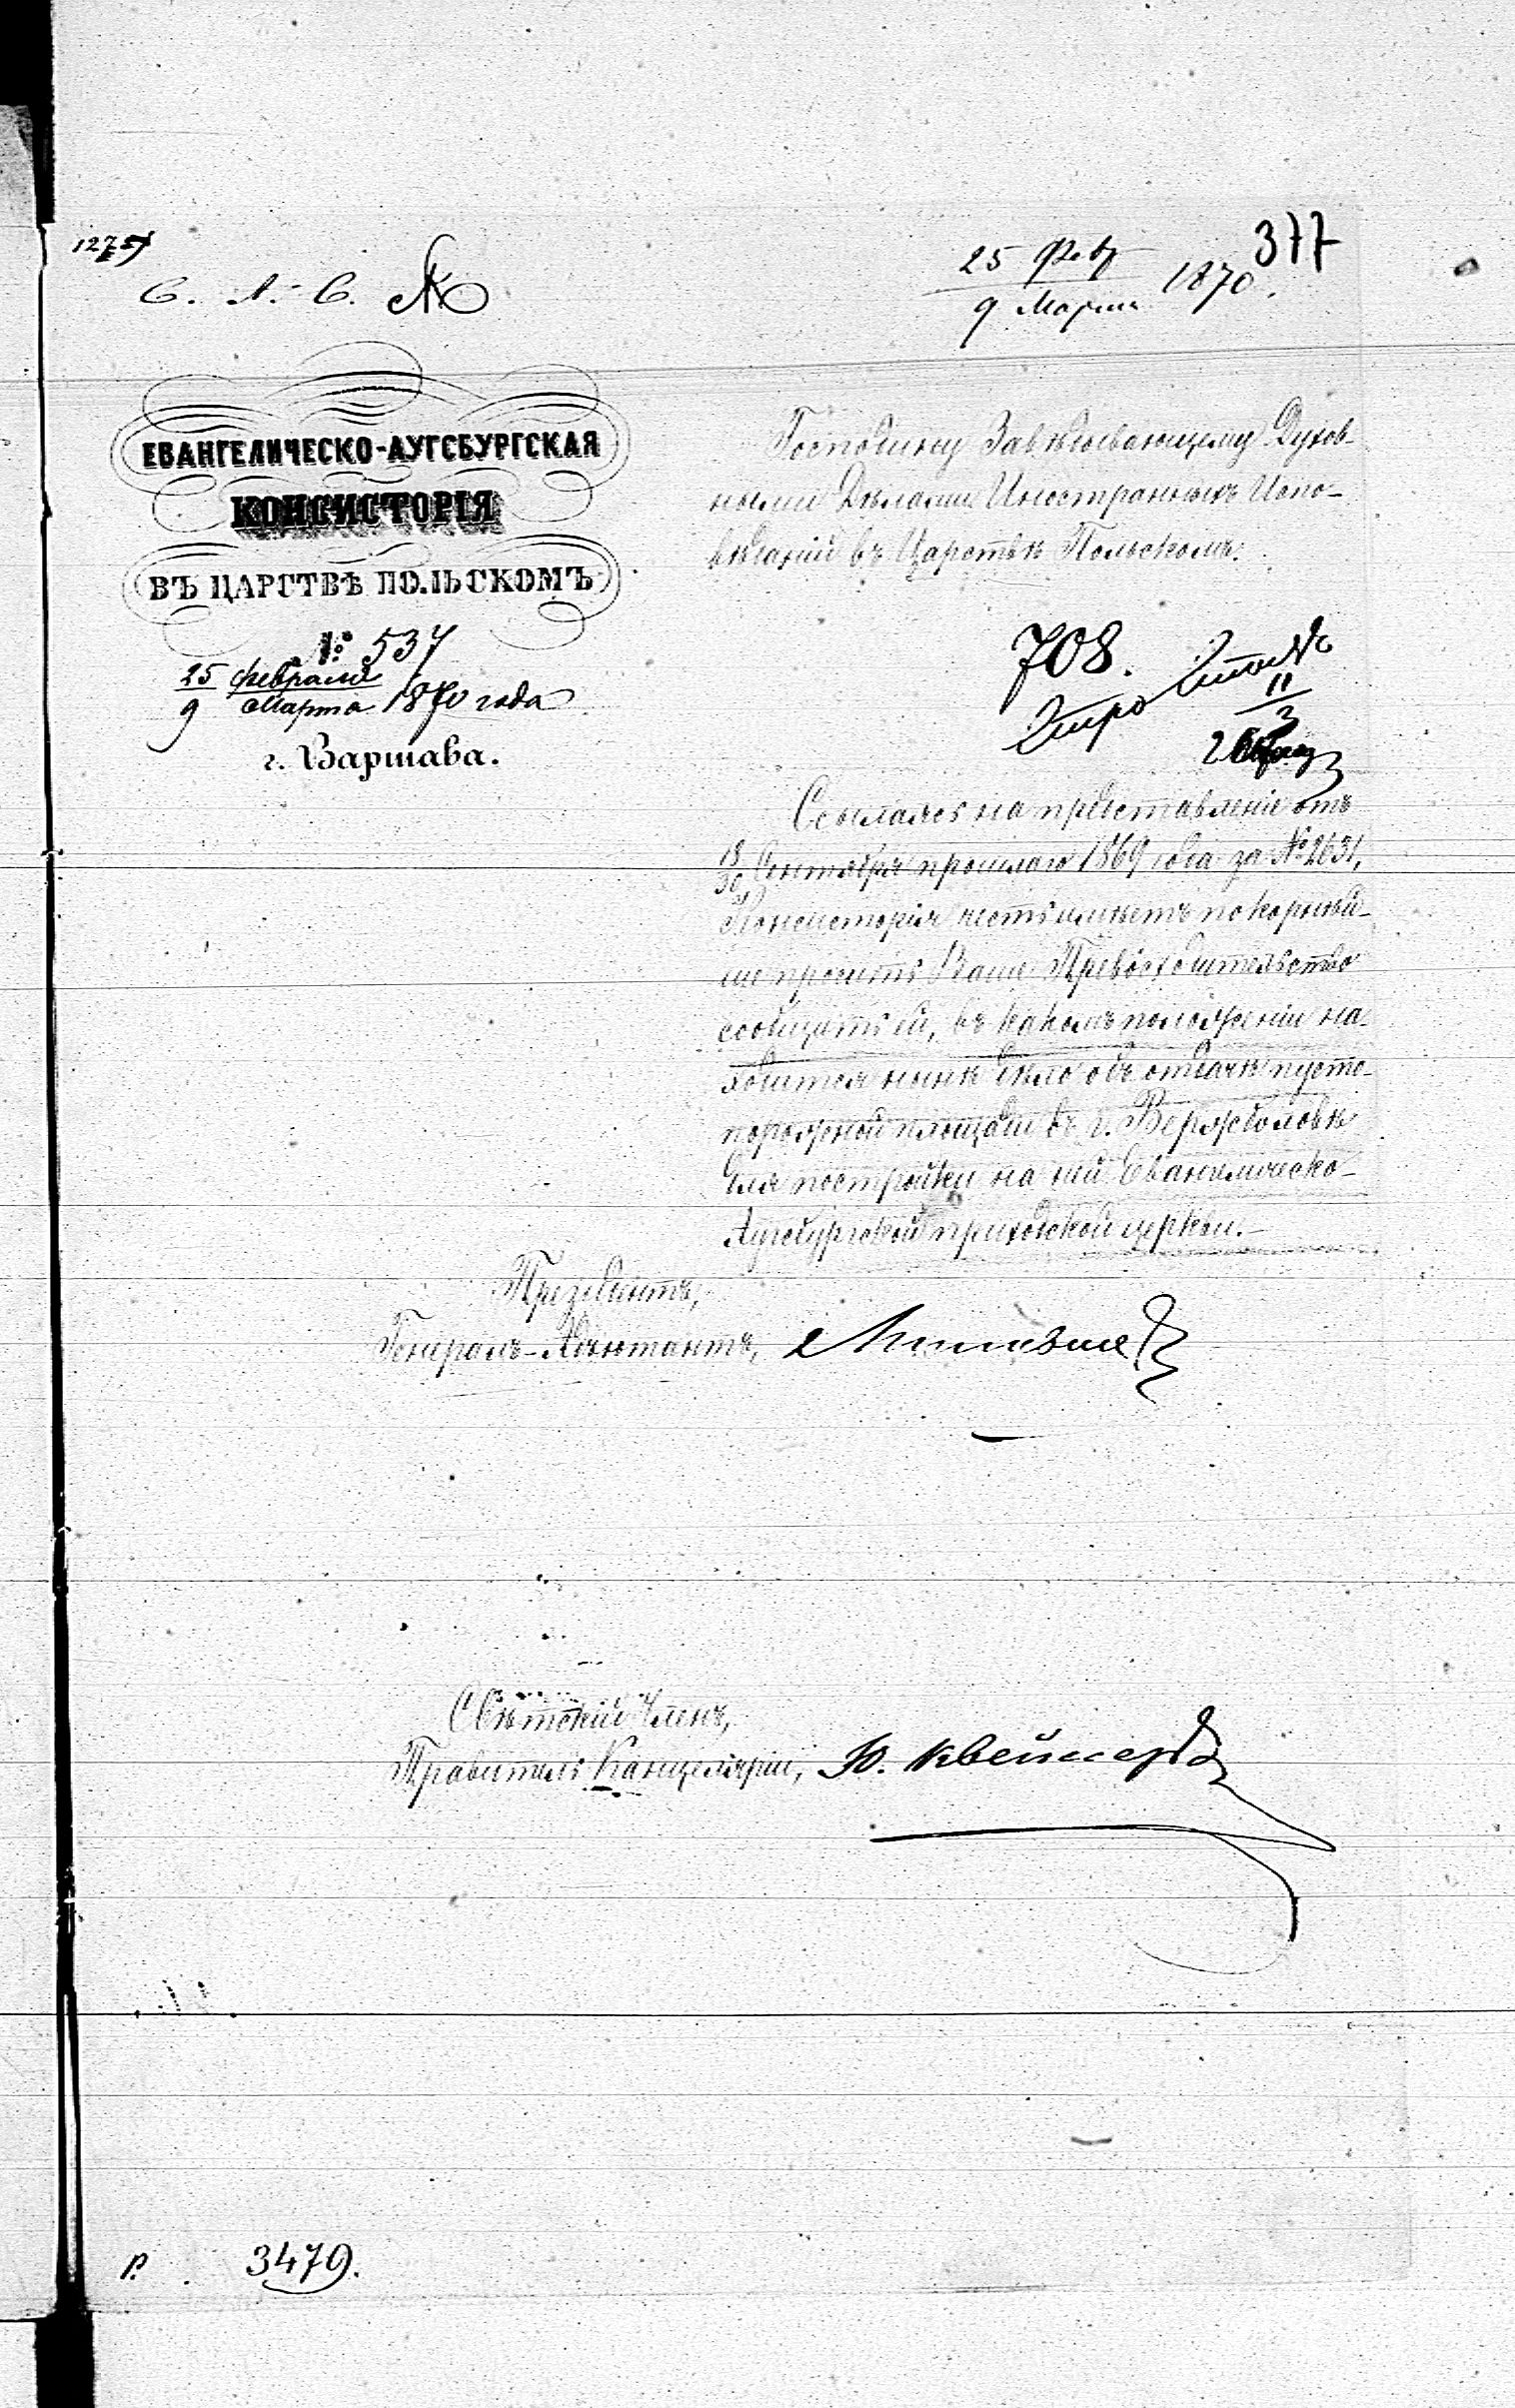 377
25 Фев
9 Марта 1870.
ЕВАНГЕЛИЧЕСКО-АУГСБУРГСКАЯ
КОНСИСТОРІЯ
ВЪ ЦАРСТВѢ ПОЛЬСКОМЪ
№ 537
25 февраля
9 Марта 1870 года
г. Варшава.
Господину Завѣдывающему Духов-
ными Дѣлами Иностранныхъ Испо-
вѣданій въ Царствѣ Польскомъ.
708.
11
3
Ссылаясь на представленіе отъ
18/30 Сентября прошлаго 1869 года за № 2631,
Консисторія честь имѣетъ покорнѣй-
ше просить Ваше Превосходительство
сообщить ей, въ какомъ положеніи на-
ходится нынѣ дѣло объ отдачѣ пусто-
порожней площади въ г. Вержболовѣ
для постройки на ней Евангелическо-
Аугсбургской приходской церкви.-
Президентъ,
Генералъ-Адъютантъ,
Свѣтскій Членъ,
Правитель Канцеляріи, Ю.
р. 3479.